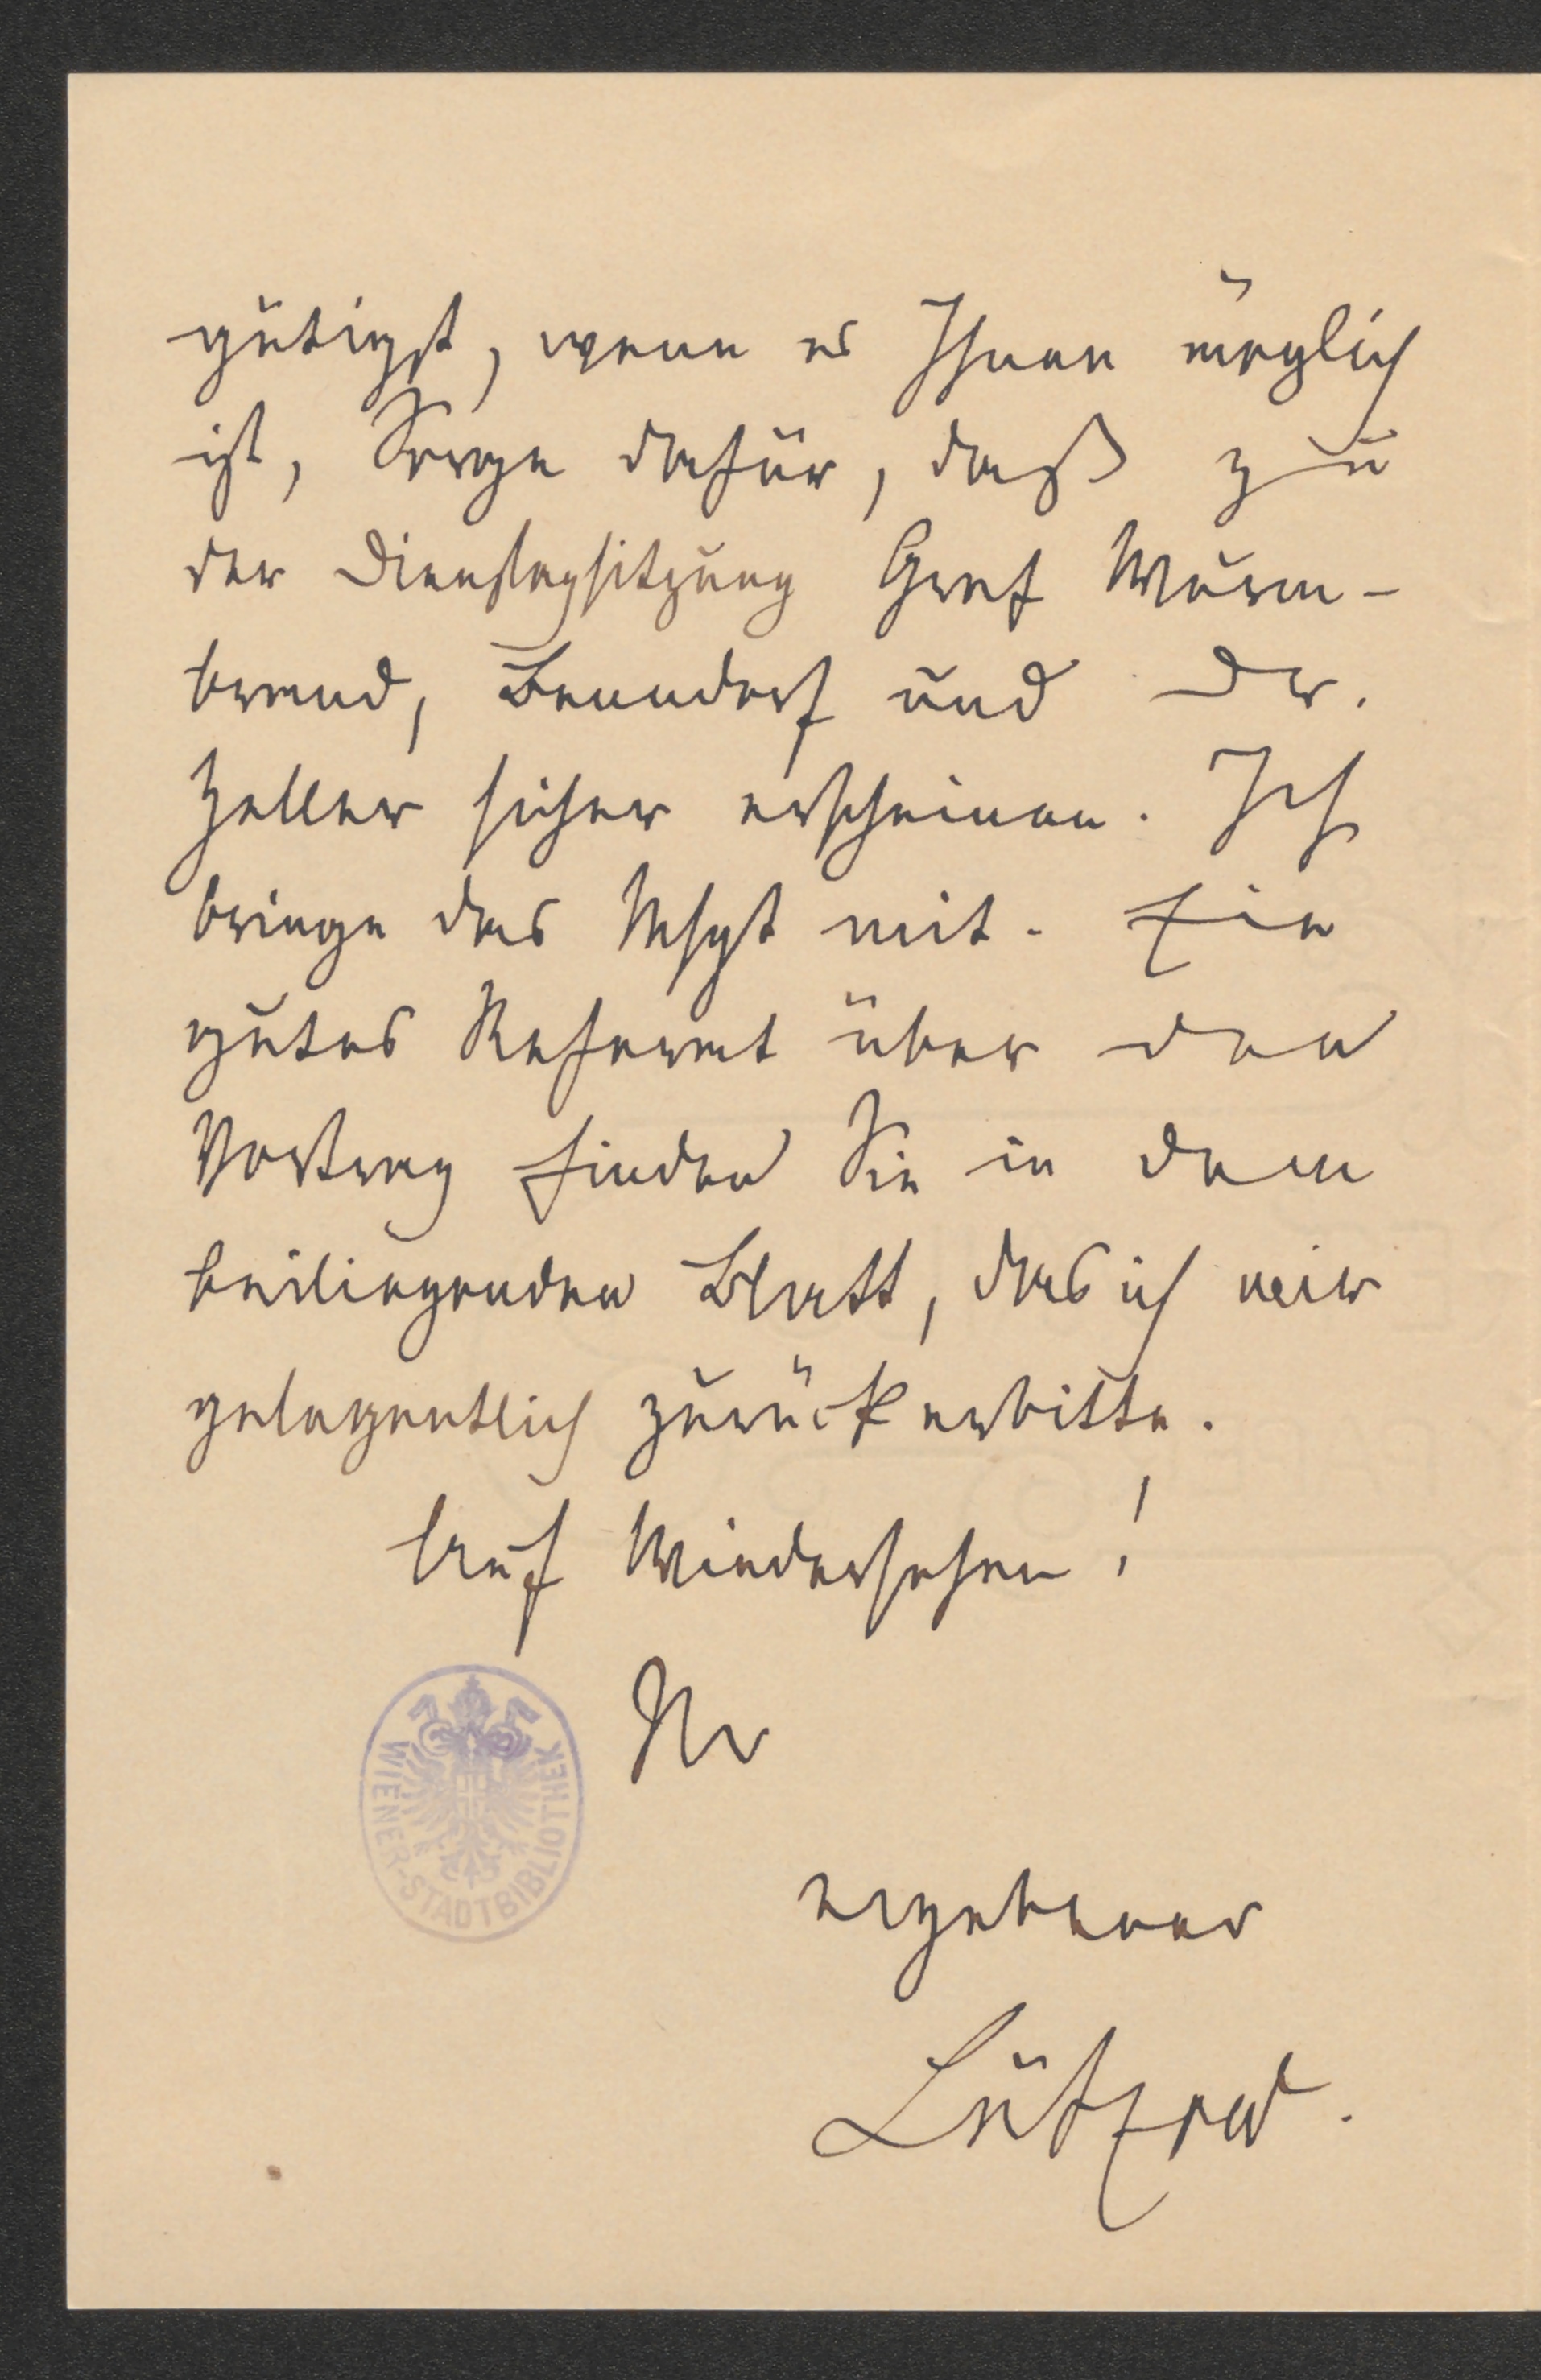 gütigst, wenn es Ihnen möglich
ist, Sorge dafür, daß zu
der Dienstagsitzung Graf Wurm-
brand, Benndorf und Dr.
Zeller sicher erscheinen. Ich
bringe das Mspt mit. Ein
gutes Referat über den
Vortrag finden Sie in dem
beiliegenden Blatt, das ich mir
gelegentlich zurückerbitte.
Auf Wiedersehen!
Ihr
ergebener
Lützow.
WIENER-STADTBIBLIOTHEK